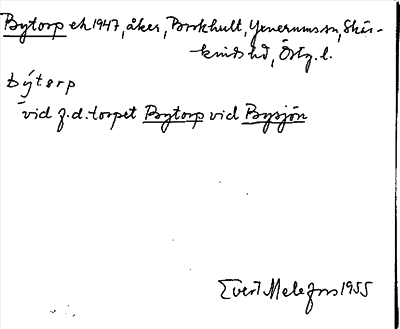 Bytorp ek 1947, åker, Borkhult, Yxnerums sn, Skär-
kinds hd, Östg. l.
býtorp
vid f.d. torpet Bytorp vid Bysjön
Evert Melefors 1955